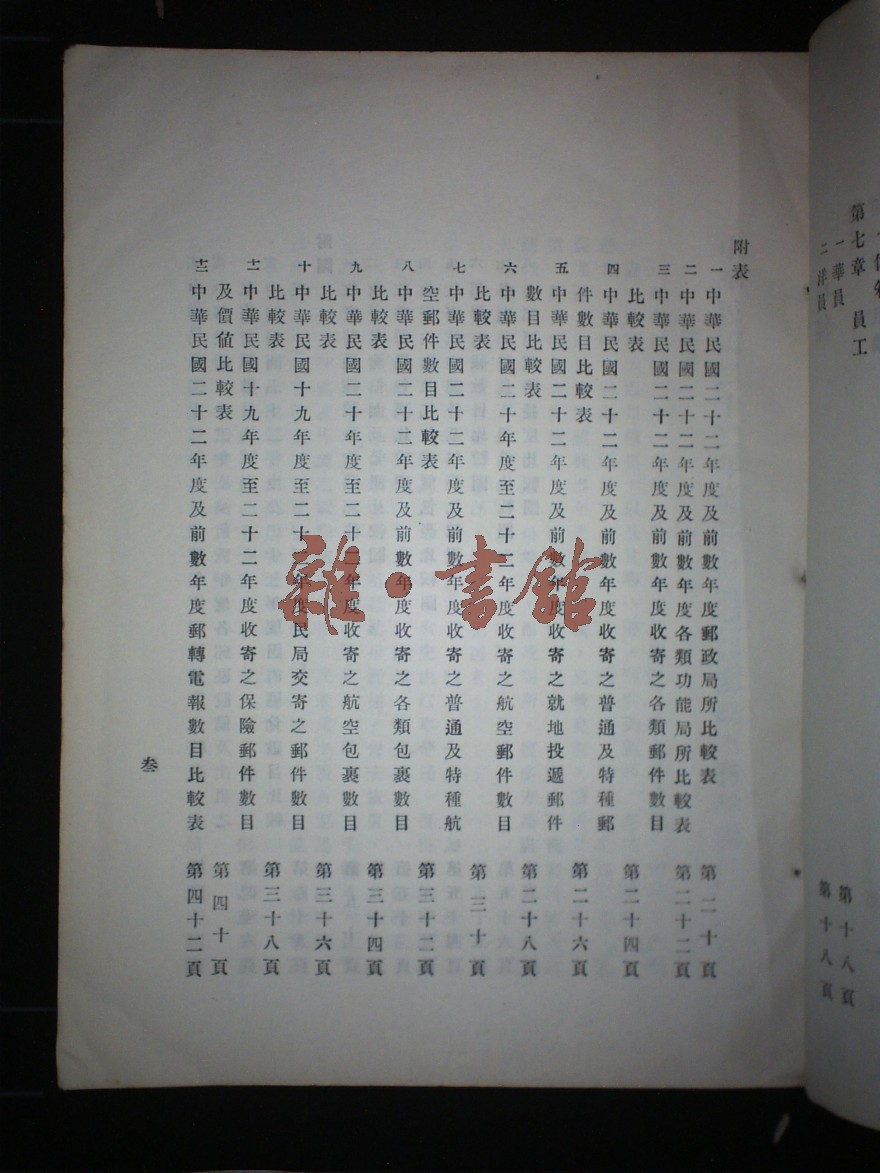 第七章 員工
一 華員 第十八頁
二 洋員 第十八頁
附表
一 中華民國二十二年度及前數年度郵政局所比較表 第二十頁
二 中華民國二十二年度及前數年度各類功能局所比較表 第二十二頁
三 中華民國二十二年度及前數年度收寄之各類郵件數目
比較表 第二十四頁
四 中華民國二十二年度及前數年度收寄之普通及特種郵
件數目比較表 第二十六頁
五 中華民國二十二年度及前數年度收寄之就地投遞郵件
數目比較表 第二十八頁
六 中華民國二十年度至二十二年度收寄之航空郵件數目
比較表 第三十頁
七 中華民國二十二年度及前數年度收寄之普通及特種航
空郵件數目比較表 第三十二頁
八 中華民國二十二年度及前數年度收寄之各類包裹數目
比較表 第三十四頁
九 中華民國二十年度至二十二年度收寄之航空包裹數目
比較表 第三十六頁
十 中華民國十九年度至二十二年度民局交寄之郵件數目
比較表 第三十八頁
十一 中華民國十九年度至二十二年度收寄之保險郵件數目
及價值比較表 第四十頁
十二 中華民國二十二年度及前數年度郵轉電報數目比較表 第四十二頁
叁
雜·書館